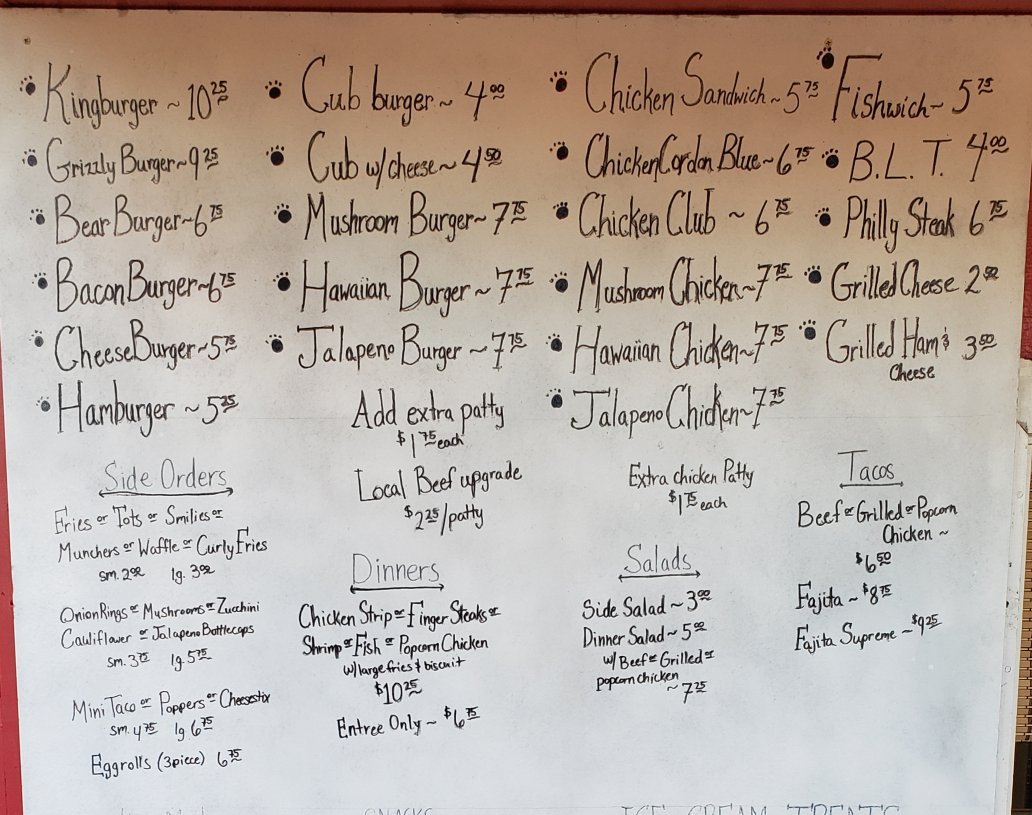 Kingburger ~ 10 25
Grizzly Burger ~ 9 25
Bear Burger ~ 6 75
Bacon Burger ~ 6 75
Cheese Burger ~ 5 75
Hamburger ~ 5 25
Side Orders
Fries or Tots or Smilies or
Munchers or Waffle or Curly Fries
sm. 2 00 lg. 3 00
Onion Rings or Mushrooms or Zucchini
Cauliflower or Jalapeno Bottlecaps
sm. 3 75 lg. 5 75
Mini Taco or Poppers or Cheesestix
sm. 4 75 lg 6 75
Eggrolls (3 piece) 6 75
Cub burger ~ 4 00
Cub w/ cheese ~ 4 50
Mushroom Burger ~ 7 75
Hawaiian Burger ~ 7 75
Jalapeno Burger ~ 7 75
Add extra patty
$1 75 each
Local Beef upgrade
$2 25/patty
Dinners
Chicken Strip or Finger Steaks or
Shrimp or Fish or Popcorn Chicken
w/ large fries & biscuit
$10 25
Entree Only ~ $6 75
Chicken Sandwich ~ 5 75
Chicken Cordon Blue ~ 6 75
Chicken Club ~ 6 75
Mushroom Chicken ~ 7 75
Hawaiian Chicken ~ 7 75
Jalapeno Chicken ~ 7 75
Extra chicken Patty
$1 75 each
Salads
Side Salad ~ 3 00
Dinner Salad ~ 5 00
w/ Beef or Grilled or
popcorn chicken
~ 7 25
Fishwich ~ 5 75
B.L.T. 4 00
Philly Steak 6 75
Grilled Cheese 2 50
Grilled Ham & 3 50
Cheese
Tacos
Beef or Grilled or Popcorn
Chicken ~
$6 50
Fajita ~ $8 75
Fajita Supreme ~ $9 25
SNACKS
ICE CREAM TREATS